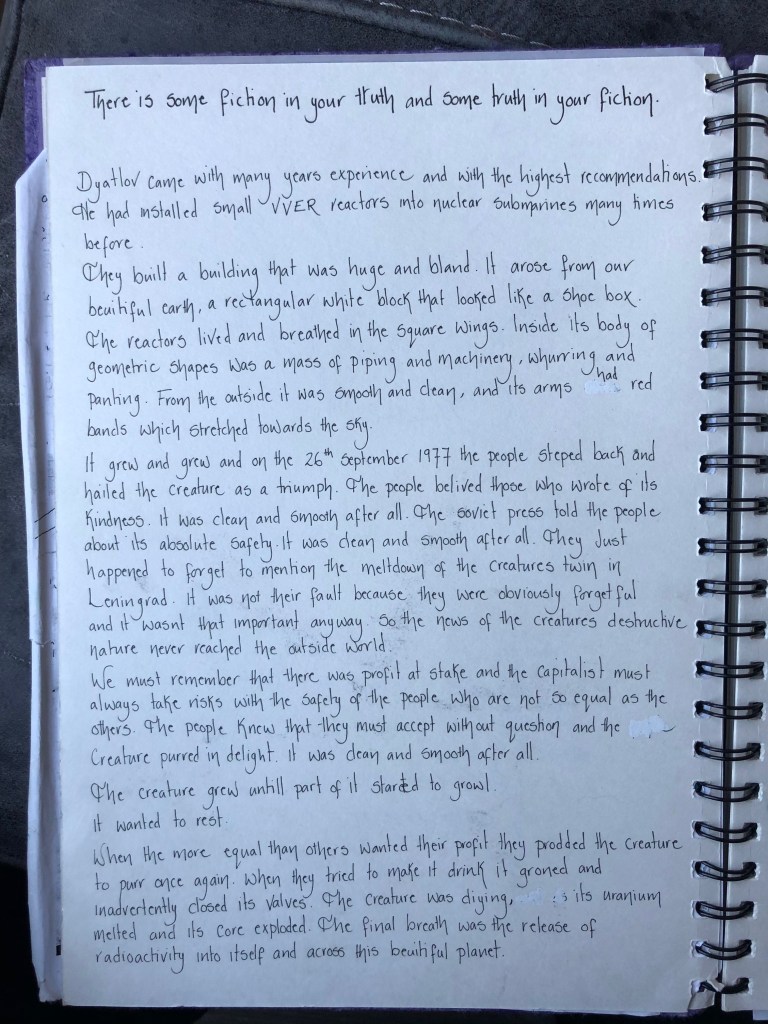 There is some fiction in your truth and some truth in your fiction.
Dyatlov came with many years experience and with the highest recommendations.
He had installed small VVER reactors into nuclear submarines many times
before.
They built a building that was huge and bland. It arose from our
beuitiful earth, a rectangular white block that looked like a shoe box.
The reactors lived and breathed in the square wings. Inside its body of
geometric shapes was a mass of piping and machinery, whurring and
panting. From the outside it was smooth and clean, and its arms had red
bands which stretched towards the sky.
It grew and grew and on the 26th September 1977 the people steped back and
hailed the creature as a triumph. The people belived those who wrote of its
kindness. It was clean and smooth after all. The soviet press told the people
about its absolute safety. It was clean and smooth after all. They Just
happened to forget to mention the meltdown of the creatures twin in
Leningrad. It was not their fault because they were obviously forgetful
and it wasnt that important anyway. So the news of the creatures destructive
nature never reached the outside world.
We must remember that there was profit at stake and the capitalist must
always take risks with the safety of the people who are not so equal as the
others. The people knew that they must accept without question and the
Creature purred in delight. It was clean and smooth after all.
The creature grew untill part of it started to growl.
It wanted to rest.
When the more equal than others wanted their profit they prodded the creature
to purr once again. When they tried to make it drink it groned and
inadvertently closed its valves. The creature was diying, its uranium
melted and its core exploded. The final breath was the release of
radioactivity into itself and across this beuitiful planet.